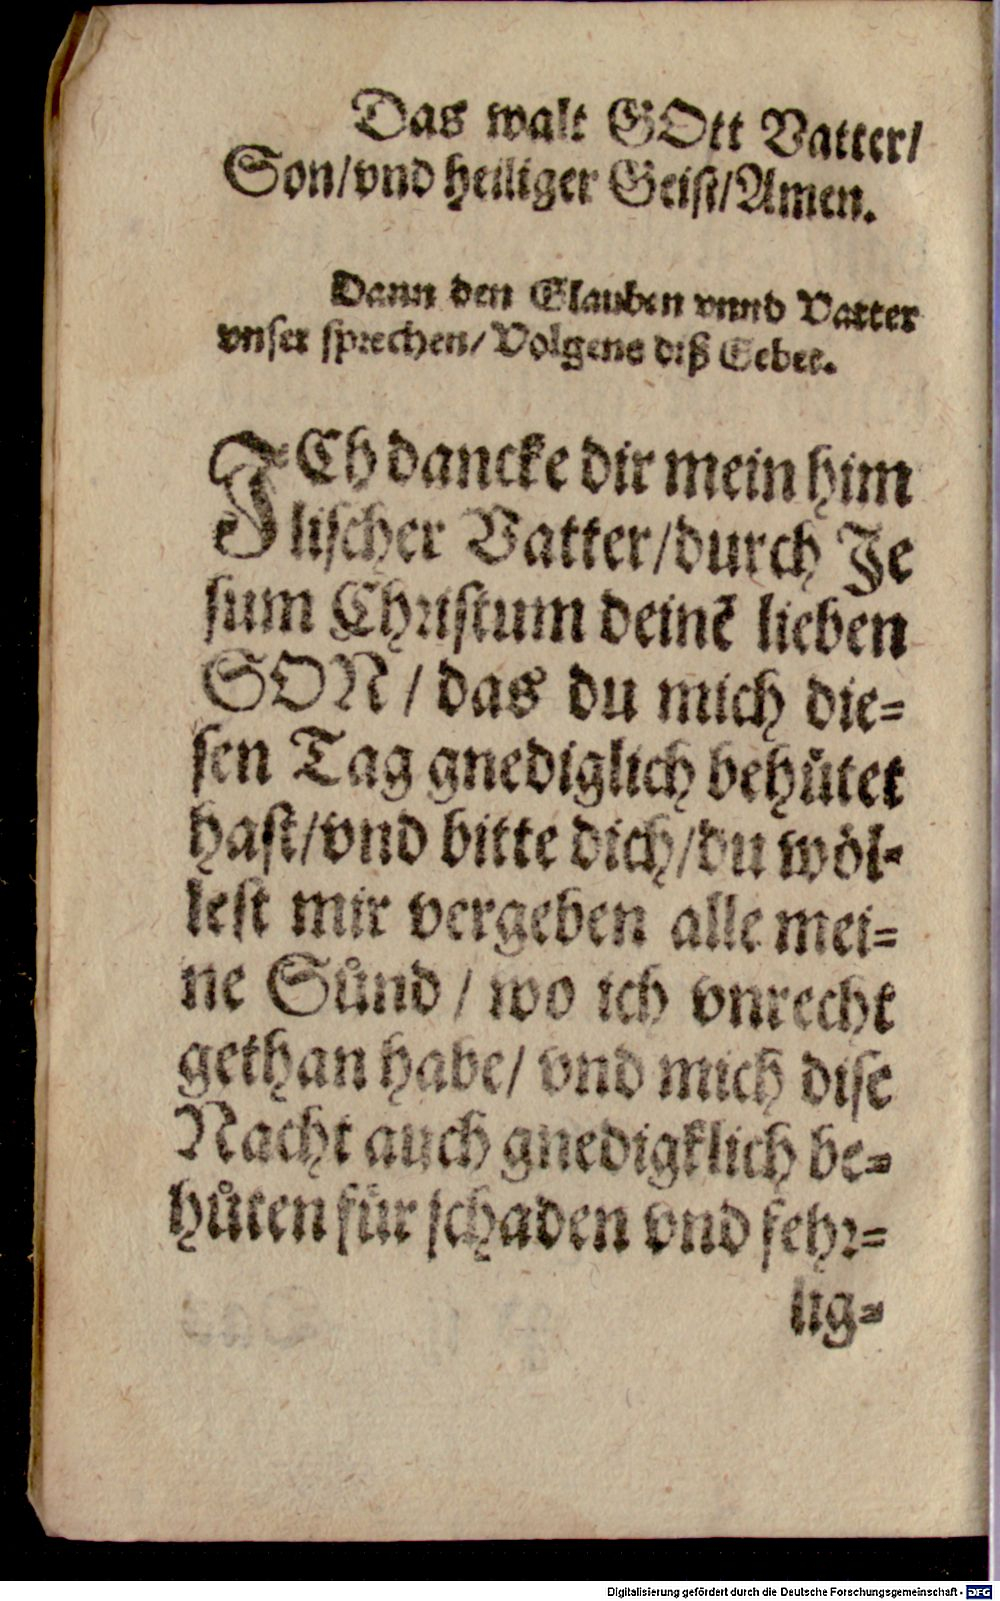 Das walt GOtt Vatter/
Son/vnd heiliger Geist/Amen.
Dann den Glauben vnnd Vatter
vnser sprechen/ Volgens diß Gebet.
ICh dancke dir mein him
lischer Vatter/durch Je
sum Christum deinē lieben
SON / das du mich die=
sen Tag gnediglich behůtet
hast/vnd bitte dich/du wöl=
lest mir vergeben alle mei=
ne Sůnd / wo ich vnrecht
gethan habe/ vnd mich dise
Nacht auch gnedigklich be=
hůten für schaden vnd fehr=
lig=
Digitalisierung gefördert durch die Deutsche Forschungsgemeinschaft - DFG